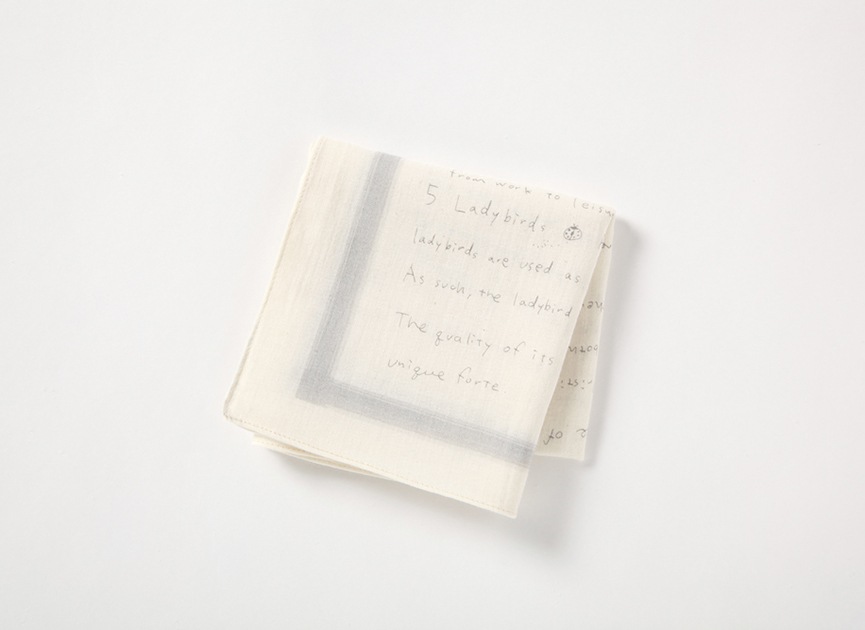 from work to
5 Ladybirds
ladybirds are used as
As such, the ladybird
The quality of its
unique forte.
of